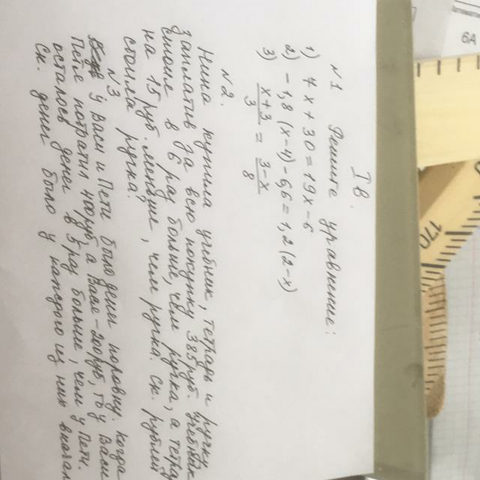 I в.
№1 Решите уравнение:
1) 7x + 30 = 19x - 6
2) - 1,8 (x - 4) - 6,6 = 1,2 (2 - x)
3) x+3/3 = 3-x/8
№2.
Нина купила учебник, тетрадь и ручку,
заплатив за всю покупку 385 руб. Учебник
в 6 раз больше, чем ручка, а тетрадь
на 15 руб. меньше, чем ручка. Ск. рублей
стоила ручка?
№3
У Васи и Пети было денег поровну. Когда
Петя потратил 400 руб, а Вася - 200 руб, то у Васи
осталось денег в 5 раз больше, чем у Пети.
Ск. денег было у каждого из них вначале
6А
170